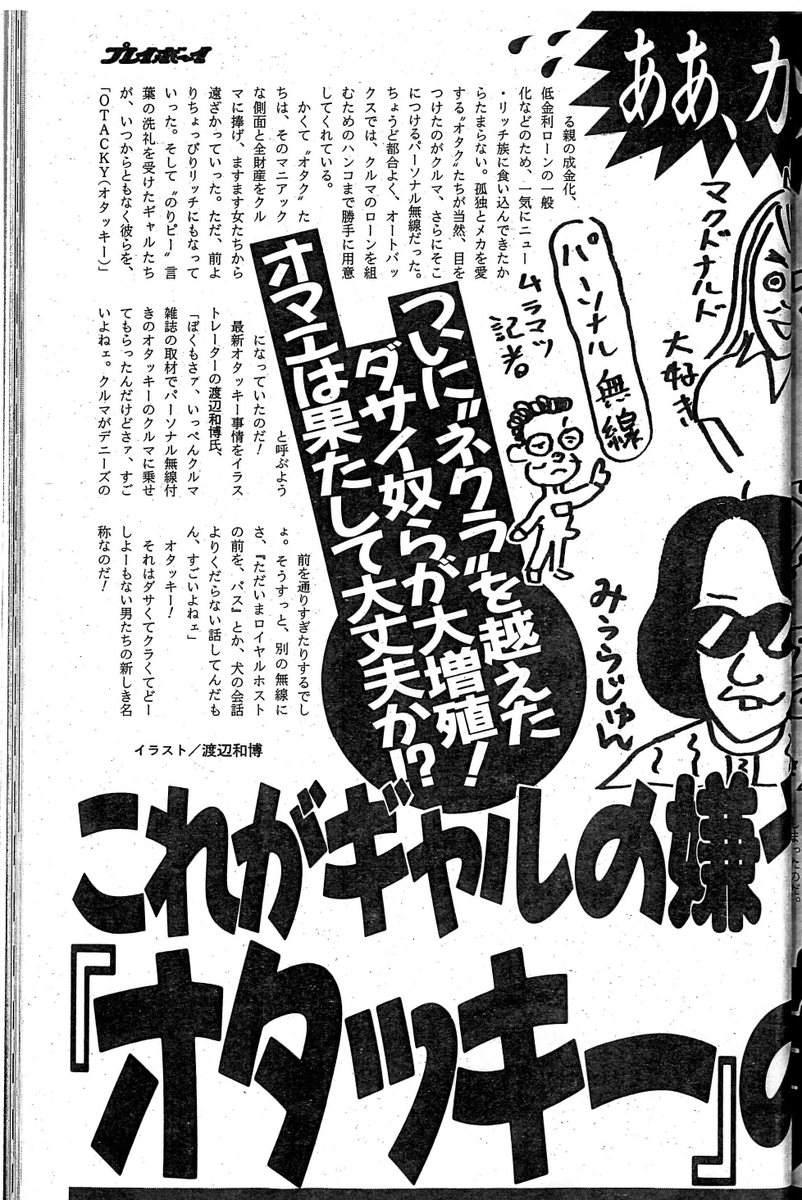 プレイボーイ
ああ、カ
マクドナルド
大好き
パーソナル無線
ムラマツ
記者。
みうらじゅん
る親の成金化、
低金利ローンの一般
化などのため、一気にニュー
・リッチ族に食い込んできたか
らたまらない。孤独とメカを愛
する〝オタク〟たちが当然、目を
つけたのがクルマ、さらにそこ
につけるパーソナル無線だった。
ちょうど都合よく、オートバッ
クスでは、クルマのローンを組
むためのハンコまで勝手に用意
してくれている。
かくて〝オタク〟た
ちは、そのマニアック
な側面と全財産をクル
マに捧げ、ますます女たちから
遠ざかっていった。ただ、前よ
りちょっぴりリッチにもなって
いった。そして〝のりピー〟言
葉の洗礼を受けたギャルたち
が、いつからともなく彼らを、
「OTACKY(オタッキー)」
と呼ぶよう
になっていたのだ!
最新オタッキー事情をイラス
トレーターの渡辺和博氏、
「ぼくもさァ、いっぺんクルマ
雑誌の取材でパーソナル無線付
きのオタッキーのクルマに乗せ
てもらったんだけどさァ、すご
いよねェ。クルマがデニーズの
前を通りすぎたりするでし
ょ。そうすっと、別の無線に
さ、『ただいまロイヤルホスト
の前を、パス』とか、犬の会話
よりくだらない話してんだも
ん、すごいよねェ」
オタッキー!
それはダサくてクラくてどー
しよーもない男たちの新しき名
称なのだ!
ついに〝ネクラ〟を越えた
ダサイ奴らが大増殖!
オマエは果たして大丈夫か!?
イラスト/渡辺和博
これがギャルの嫌
『オタッキー』の
まったのだ。